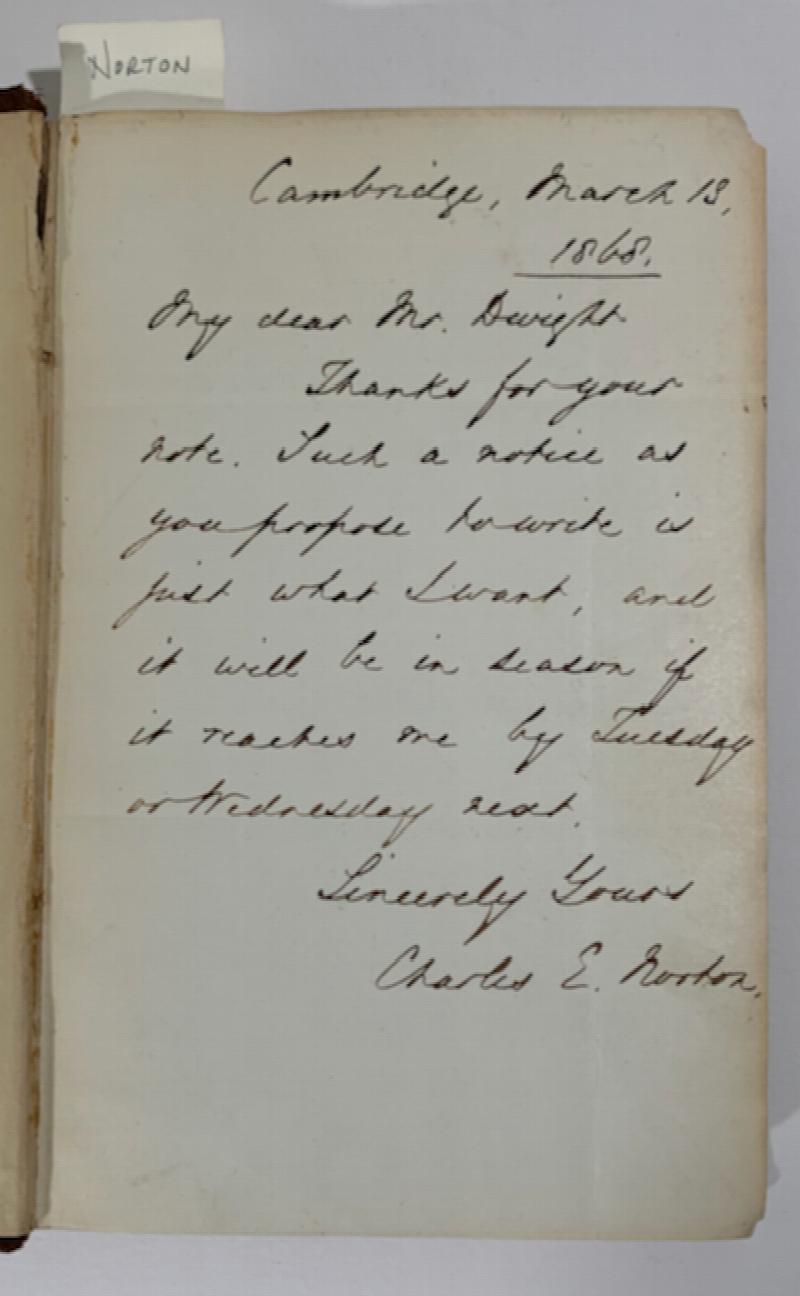 NORTON
Cambridge, March 13,
1868.
My dear Mr. Dwight
Thanks for your
note. Such a notice as
you propose to write is
just what I want, and
it will be in season if
it reaches me by Tuesday
or Wednesday next.
Sincerely Yours
Charles E. Norton.